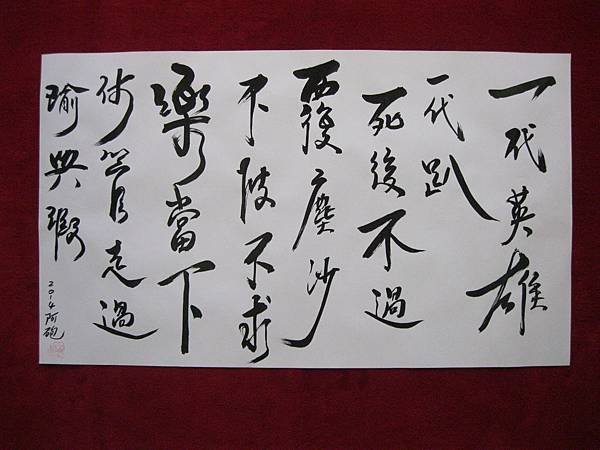 一代英雄
一代趴
死後不過
覆塵沙
不忮不求
樂當下
走過
瑜與瑕
2014 阿砲